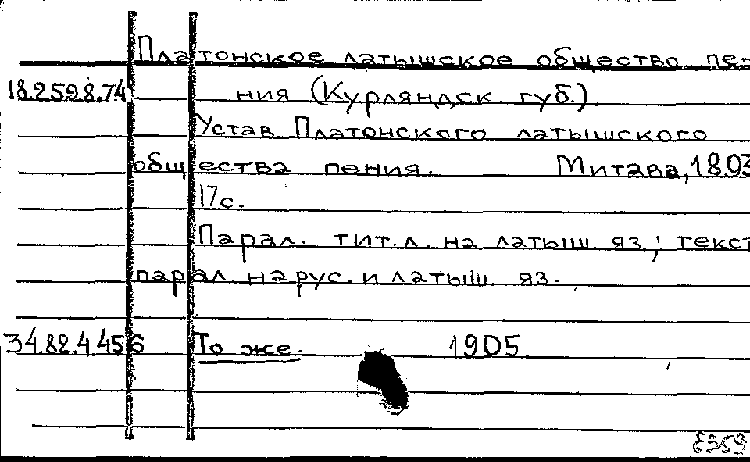 Платонское латышское общество пе-
18.259.8.74 ния (Курляндск губ.)
Устав Платонского латышского
общества пения. Митава, 1803
17с.
Парал. тит. л. на латыш яз.; текст
парал на рус. и латыш. яз.
34.82.4.456 То же. 1905